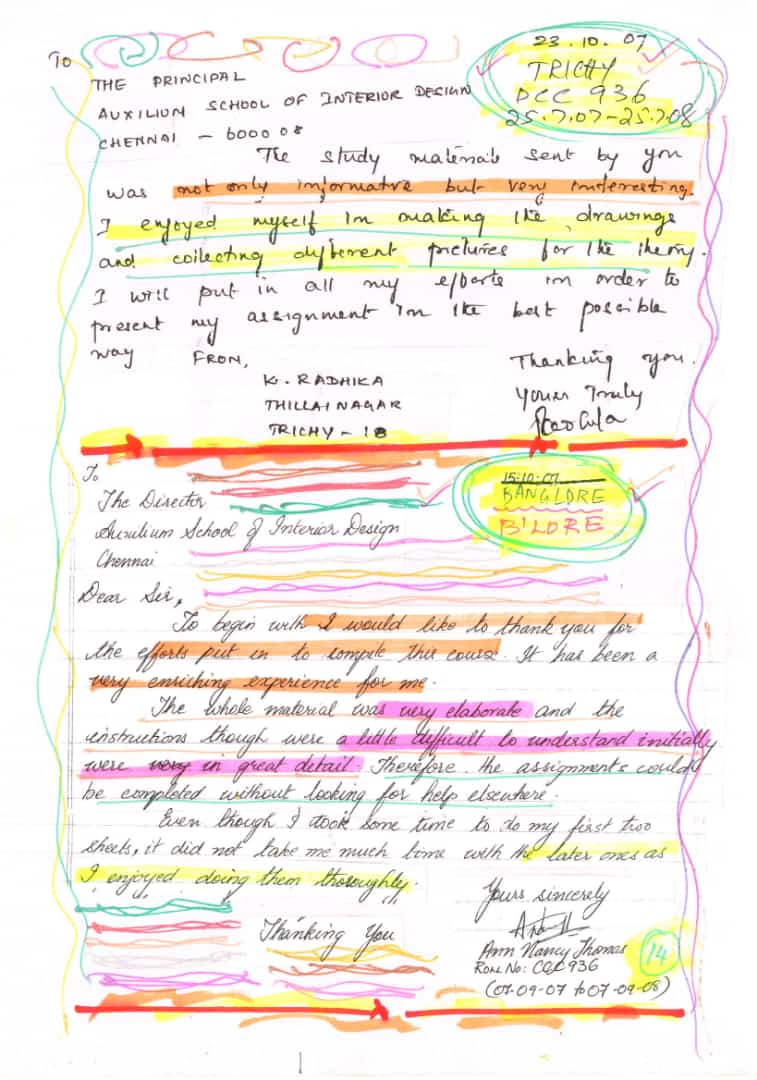 To
THE PRINCIPAL
AUXILIUM SCHOOL OF INTERIOR DESIGN
CHENNAI - 600008
23.10.07
TRICHY
DCC 936
25.7.07-25.7.08
The study materials sent by you
was not only informative but very interesting.
I enjoyed myself in making the drawings
and collecting different pictures for the theory.
I will put in all my efforts in order to
present my assignment in the best possible
way
FROM,
K. RADHIKA
THILLAI NAGAR
TRICHY - 18
Thanking you.
Yours Truly
To
The Director
Auxilium School of Interior Design
Chennai
15.10.07
BANGLORE
B'LORE
Dear Sir,
To begin with I would like to thank you for
the efforts put in to compile this course. It has been a
very enriching experience for me.
The whole material was very elaborate and the
instructions though were a little difficult to understand initially
were very in great detail. Therefore the assignments could
be completed without looking for help elsewhere.
Even though I took some time to do my first two
sheets, it did not take me much time with the later ones as
I enjoyed doing them thoroughly.
Thanking You
Yours sincerely
Ann Nancy Thomas
ROLL NO: CQC936
(07-09-07 to 07-09-08)
14